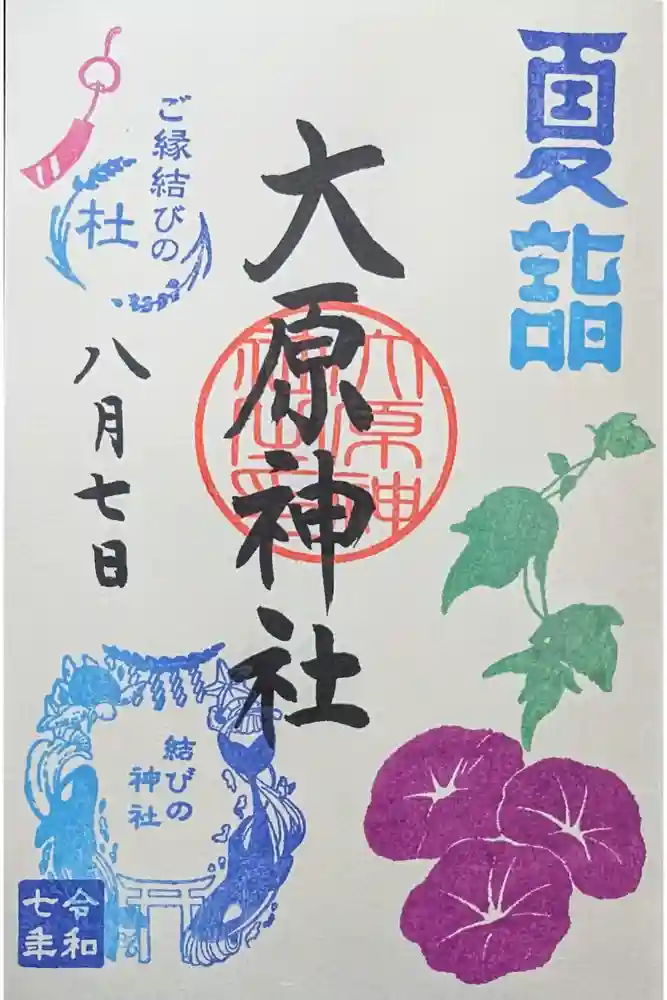 夏詣
大原神社
大原神社之印
ご縁結びの
杜
八月七日
結びの
神社
令和
七年